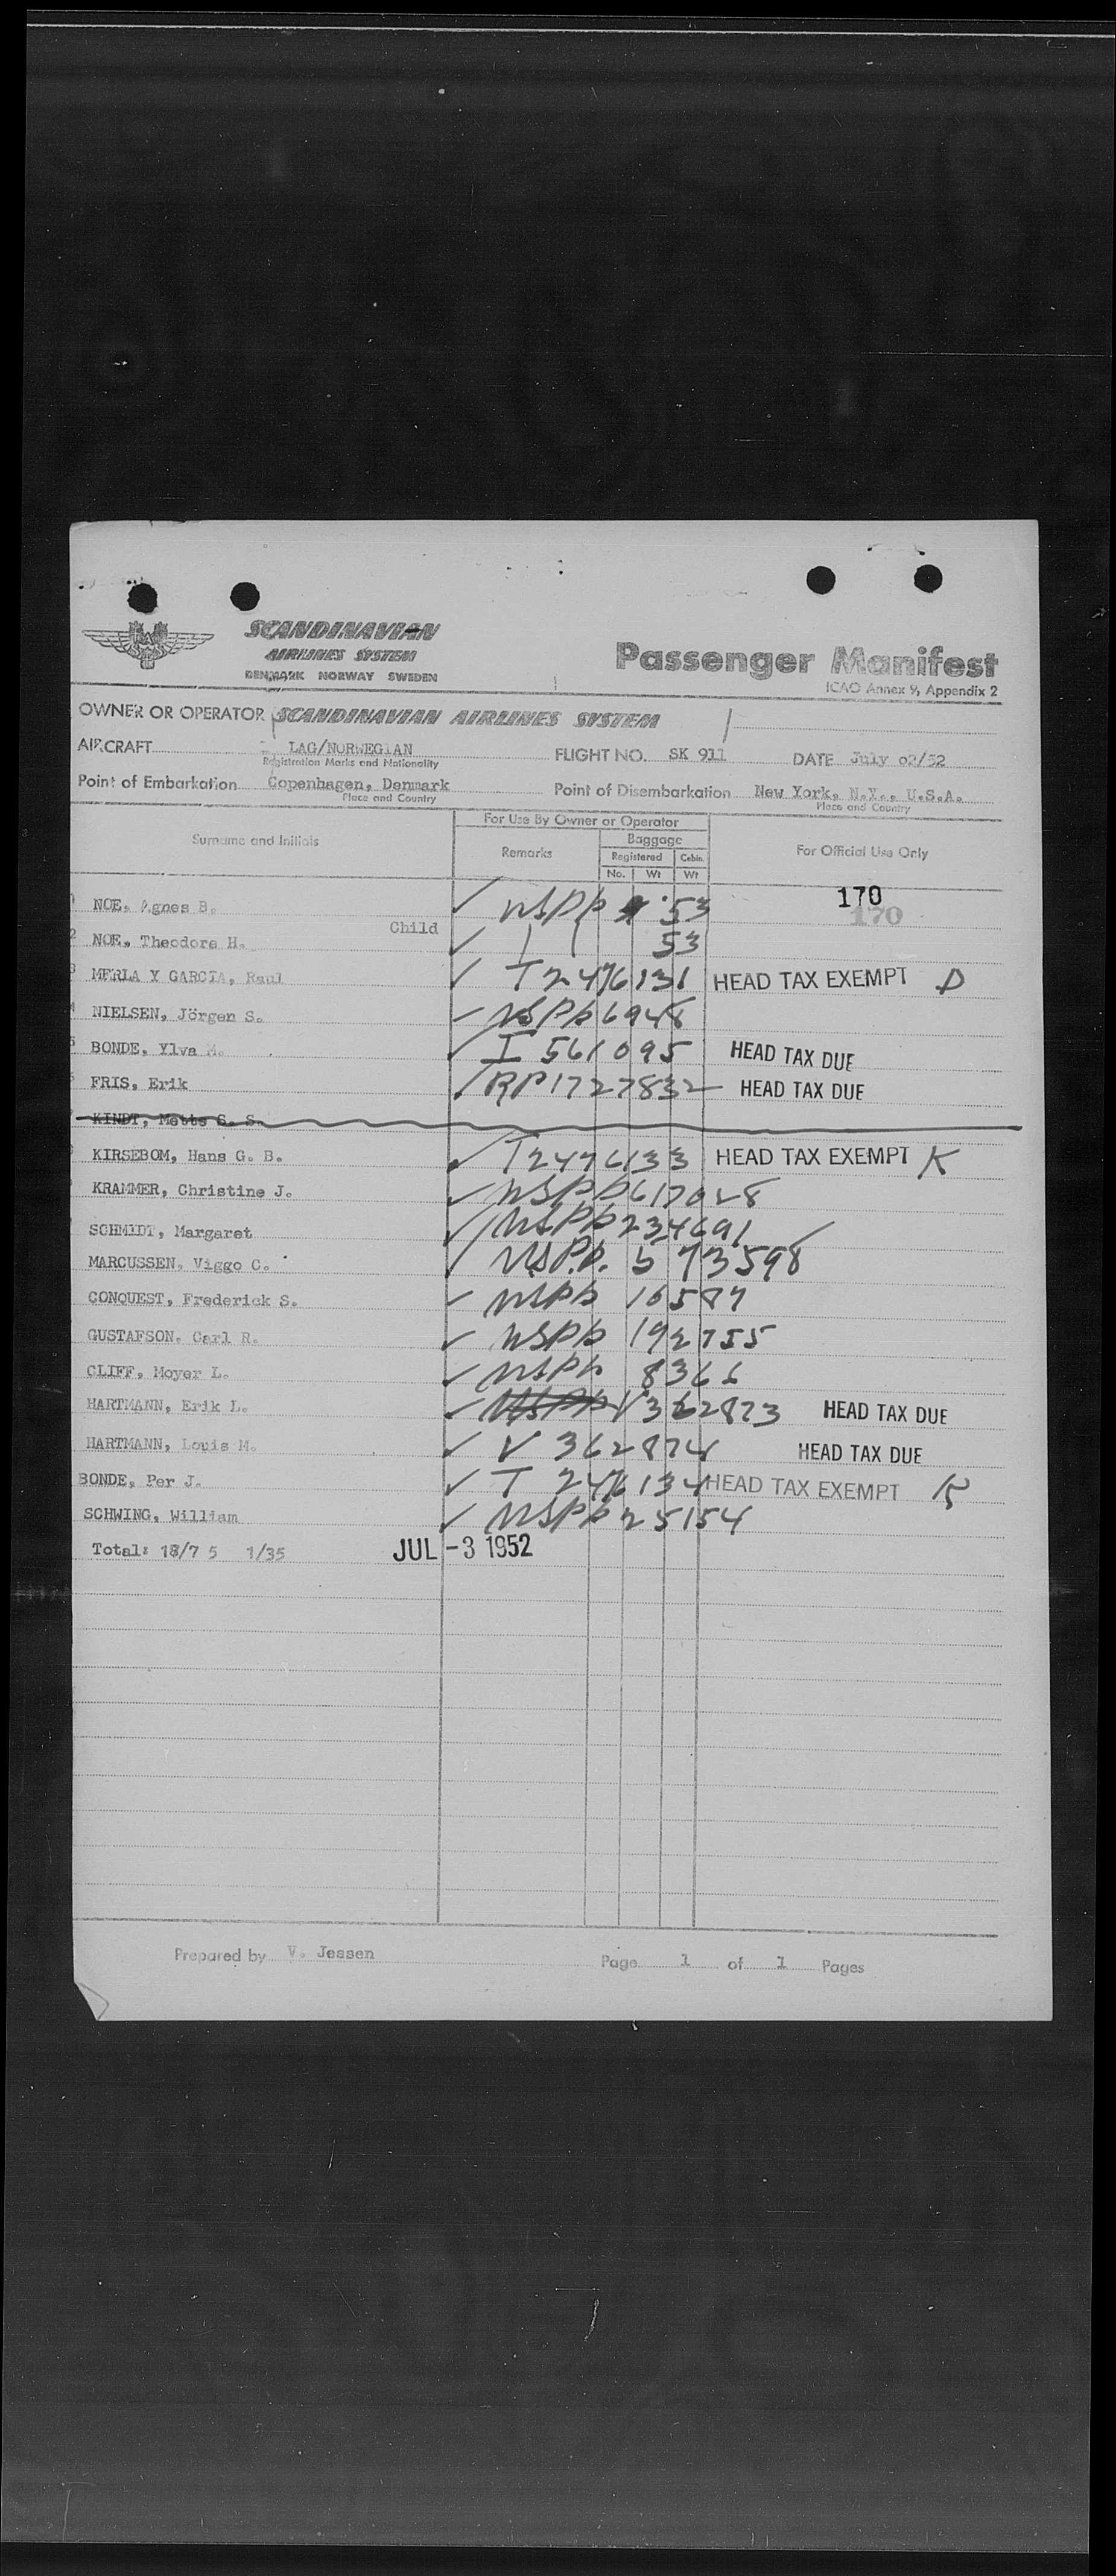 SCANDINAVIAN
AIRLINES SYSTEM
DENMARK NORWAY SWEDEN
Passenger Manifest
ICAO Annex 9, Appendix 2
OWNER OR OPERATOR SCANDINAVIAN AIRLINES SYSTEM
AIRCRAFT LAG/NORWEGIAN FLIGHT NO. SK 911 DATE July 02/52
Registration Marks and Nationality
Point of Embarkation Copenhagen, Denmark Point of Disembarkation New York, N.Y., U.S.A.
Place and Country Place and Country
For Use By Owner or Operator
Surname and Initials Remarks Baggage For Official Use Only
Registered Cabin
No. Wt Wt
170
170
NOE, Agnes B. USPP 53
Child
2 NOE, Theodora H. 53
3 MERLA Y GARCIA, Raul T2476131 HEAD TAX EXEMPT D
4 NIELSEN, Jörgen S. USPP 6948
5 BONDE, Ylva M. I 561095 HEAD TAX DUE
FRIS, Erik RP1727832 HEAD TAX DUE
KINDT, Mette S. S.
KIRSEBOM, Hans G. B. T2476133 HEAD TAX EXEMPT K
KRAMMER, Christine J. USPP 617028
SCHMIDT, Margaret USPP 234691
MARCUSSEN, Viggo C. USP.P. 573598
CONQUEST, Frederick S. USPP 16587
GUSTAFSON, Carl R. USPP 192755
CLIFF, Moyer L. USPP 8366
HARTMANN, Erik L. USPP V362873 HEAD TAX DUE
HARTMANN, Louis M. V 362874 HEAD TAX DUE
BONDE, Per J. T 2476134 HEAD TAX EXEMPT K
SCHWING, William USPP 25154
Total: 18/7 5 1/35 JUL -3 1952
Prepared by V. Jessen Page 1 of 1 Pages